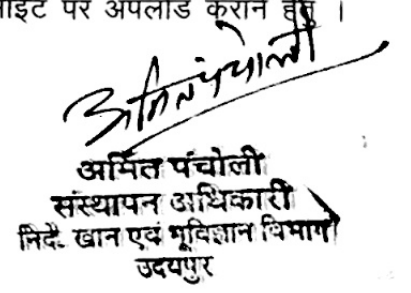 ाइट पर अपलोड कराने हेतु ।
अमित पंचोली
अमित पंचोली
संस्थापन अधिकारी
निदे. खान एवं भूविज्ञान विभाग
उदयपुर